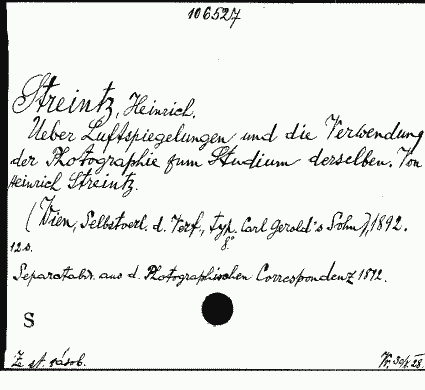 106527
Streintz, Heinrich.
Ueber Luftspiegelungen und die Verwendung
der Photographie zum Studium derselben. Von
Heinrich Streintz.
(Wien, Selbstverl. d. Verf., typ. Carl Gerold's Sohn), 1892.
8°
12 S.
Separatabdr. aus d. Photographischen Correspondenz 1892.
S